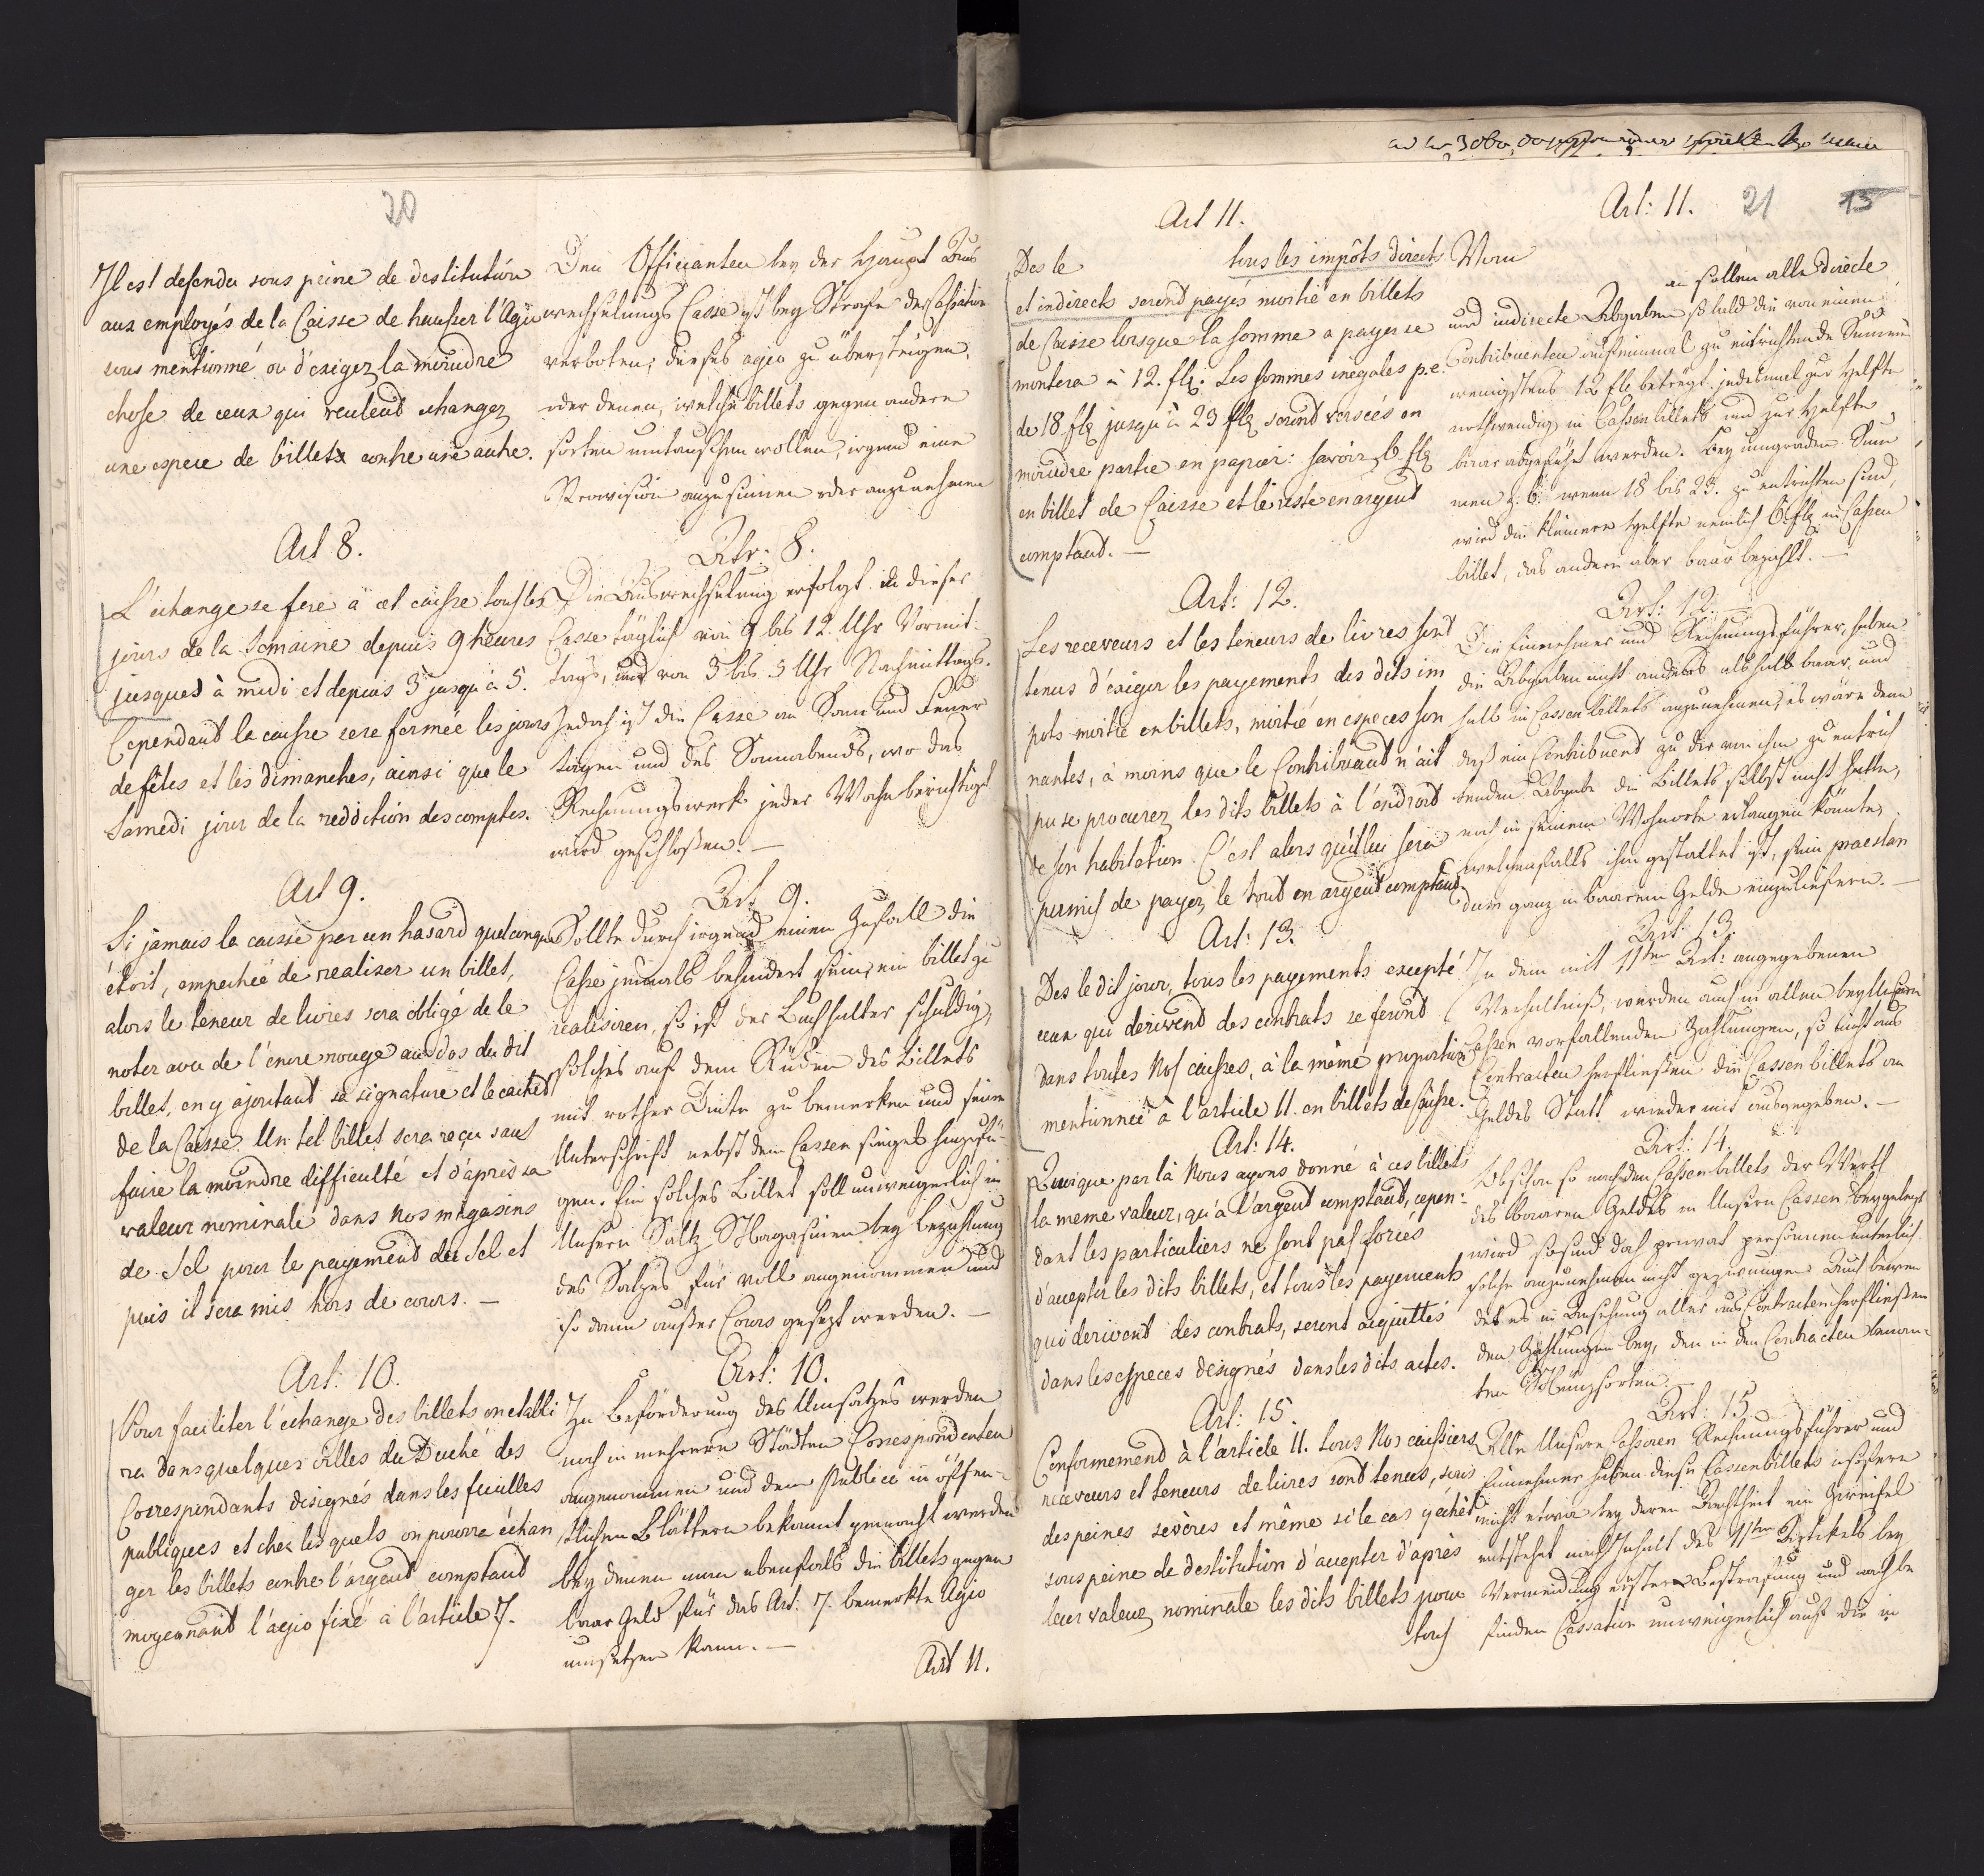 20
Il est defendu sous peine de destitution
aux employés de la Caisse de hausser l'Agio
sous mentionné ou d'exiger la moindre
chose de ceux qui veulent echanger
une espece de billets contre une autre.
Art 8.
L'échange se fera à cet caisse tous les
jours de la Semaine depuis 9 heures
jusques à midi et depuis 3 jusqu'à 5.
Cependant la caisse sera fermée les jours
de fêtes et les dimanches, ainsi que le
Samedi jour de la reddition des comptes.
Art 9.
Si jamais la caisse par un hasard quelconque
étoit, empechée de realiser un billet,
alors le teneur de livres sera obligé de le
noter avec de l'encre rouge au dos du dit
billet, en y ajoutant sa signature et le cachet
de la Caisse. Un tel billet sera reçu sans
faire la moindre difficulté et d'après sa
valeur nominale dans nos magasins
de Sel pour le payement du Sel et
puis il sera mis hors de cours. —
Art: 10.
Pour faciliter l'echange des billets on etabli
ra dans quelques villes du Duché des
Correspondants désignés dans les feuilles
publiques et chez lesquels on pourra échan
ger les billets contre l'argent comptant
moyennant l'agio fixé à l'article 7.
Den Officianten bey der Haupt Aus
wechselungs Casse ist bey Strafe der Cassation
verboten, dieses agio zu übersteigen,
oder denen, welche billets gegen andere
sorten umtauschen wollen, irgend eine
Provision anzusinnen oder anzunehmen
Atr: 8.
Die Auswechselung erfolgt in dieser
Casse täglich von 9 bis 12 Uhr Vormit
tags, und von 3 bis 5 Uhr Nachmittags.
Jedoch ist die Casse an Sonn und Feyer
tagen und des Sonnabends, wo das
Rechnungswerk jeder Woche berichtigt
wird geschlossen. —
Art 9.
Sollte durch irgend einen Zufall die
Casse jemals behindert sein, ein billet zu
realisiren, so ist der Buchhalter schuldig,
solches auf dem Rücken des Billets
mit rother Dinte zu bemerken und seine
Unterschrift nebst dem Cassen siegel hinzufü-
gen. Ein solches Billet soll unweigerlich in
Unsern Saltz Magasinen bey Bezahlung
des Salzes für voll angenommen und
so dann außer Cours gesezt werden. —
Art: 10.
Zu Beförderung des Umsatzes werden
noch in mehrern Städten Correspondenten
angenommen und dem Publico in öffen-
tlichen Blättern bekannt gemacht werden
bey denen man ebenfals die billets gegen
baar Geld für das Art: 7. bemerkte Agio
umsetzen kann. —
Art 11.
21 15
Art 11.
Des le tous les impôts directs
et indirects seront payés moitié en billets
de Caisse lorsque la somme a payer se
montera à 12. flz. Les sommes inégales p.e.
de 18 flz jusqu'à 23 flz seront versées en
moindre partie en papier: savoir 6 flz
en billet de Caisse et le reste en argent
comptant. —
Art: 12.
Les receveurs et les teneurs de livres sont
tenus d'éxiger les payements des dits im
pots moitié en billets, moitié en especes son
nantes, à moins que le Contribuant n'ait
pu se procurer les dits billets à l'endroit
de son habitation. C'est alors qu'il lui sera
permis de payer le tout en argent comptant.
Art: 13.
Des le dit jour, tous les payements excepté
ceux qui derivent des contrats se feront
dans toutes Nos caisses, à la même proportion
mentionnée à l'article 11. en billets de Caisse.
Art: 14.
Quoique par là Nous ayons donné à ces billets
la meme valeur, qu'à l'argent comptant, cepen-
dant les particuliers ne sont pas forcés
d'accepter les dits billets, et tous les payements
qui derivent des contrats, seront acquittés
dans les especes designés dans les dits actes.
Art: 15.
Conformement à l'article 11. tous Nos caissiers
receveurs et teneurs de livres sont tenus, sous
des peines sevères et même si le cas y échet
sous peine de destitution d'accepter d'après
leur valeur nominale les dits billets pour
tous
Art: 11.
Vom
an sollen alle directe
und indirecte Abgaben so bald die von einem
Contribuenten auf einmal zu entrichtende Summe
wenigstens 12 flz beträgt jedesmal zur Helfte
nothwendig in Cassen billets und zur Helfte
baar abgeführt werden. Bey ungraden Sum
men z: b: wenn 18 bis 23. zu entrichten sind,
wird die kleinere Helfte nemlich 6 flz in Cassen
billet, das andere aber baar bezahlt. —
Art: 12.
Die Einnehmer und Rechnungsführer haben
die Abgaben nicht anders als halb baar, und
halb in Cassen billets anzunehmen, es wäre denn
daß ein Contribuent zu der von ihm zu entrich
tenden Abgabe die Billets selbst nicht hatte,
noch in seinem Wohnorte erlangen könnte,
welchenfalls ihm gestattet ist, sein praestan
dum ganz in baarem Gelde einzuliefern. —
Art: 13.
In dem mit 11ten Art: angegebenen
Verhältniß, werden auch in allen bey Unsern
Cassen vorfallenden Zahlungen, so nicht aus
Contracten herfließen die Cassen billets an
Geldes Statt wieder mit ausgegeben. —
Art: 14.
Obschon so nach den Cassenbillets der Werth
des baaren Geldes in Unsern Cassen beygelegt
wird so sind doch privat personen unterlich
solche anzunehmen nicht gezwungen. Auch bewen
det es in Ansehung aller aus Contracten herfließen
den Zahlungen bey, den in den Contracten benann-
ten Münzsorten. —
Art: 15.
Alle Unsere Cassirer Rechnungsführer und
Einnehmer haben diese Cassenbillets in sofern
nicht etwa bey deren Aechtheit ein Zweifel
entstehet nach Inhalt des 11ten Artikels bey
Vermeidung ernster Bestrafung und nach be
finden Cassation unweigerlich auf die in